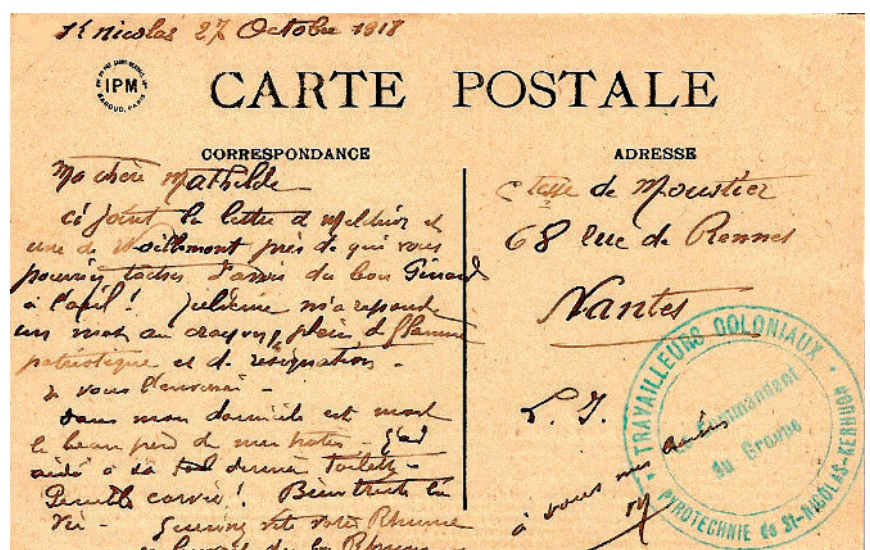 St nicolas 27 Octobre 1918
IPM
CARTE POSTALE
CORRESPONDANCE
Ma chère Mathilde
ci joint la lettre d et
une de près de qui vous
tacher d'avoir du bon Pinard
à l'avril ! m'a repondu
un mot au crayon, plein d flamme
patriotique et d résignation -
je vous l'enverrai -
dans mon domicile est mort
le beau père de mes hotes - j'ai
aidé à sa toilette -
Penible corvée ! Bien triste la
vie - votre Rhume
ADRESSE
Ctesse de Moustier
68 Rue de Rennes
Nantes
à vous mes amies
M
TRAVAILLEURS COLONIAUX
Le Commandant
du Groupe
PYROTECHNIE de St-NICOLAS-KERHUON